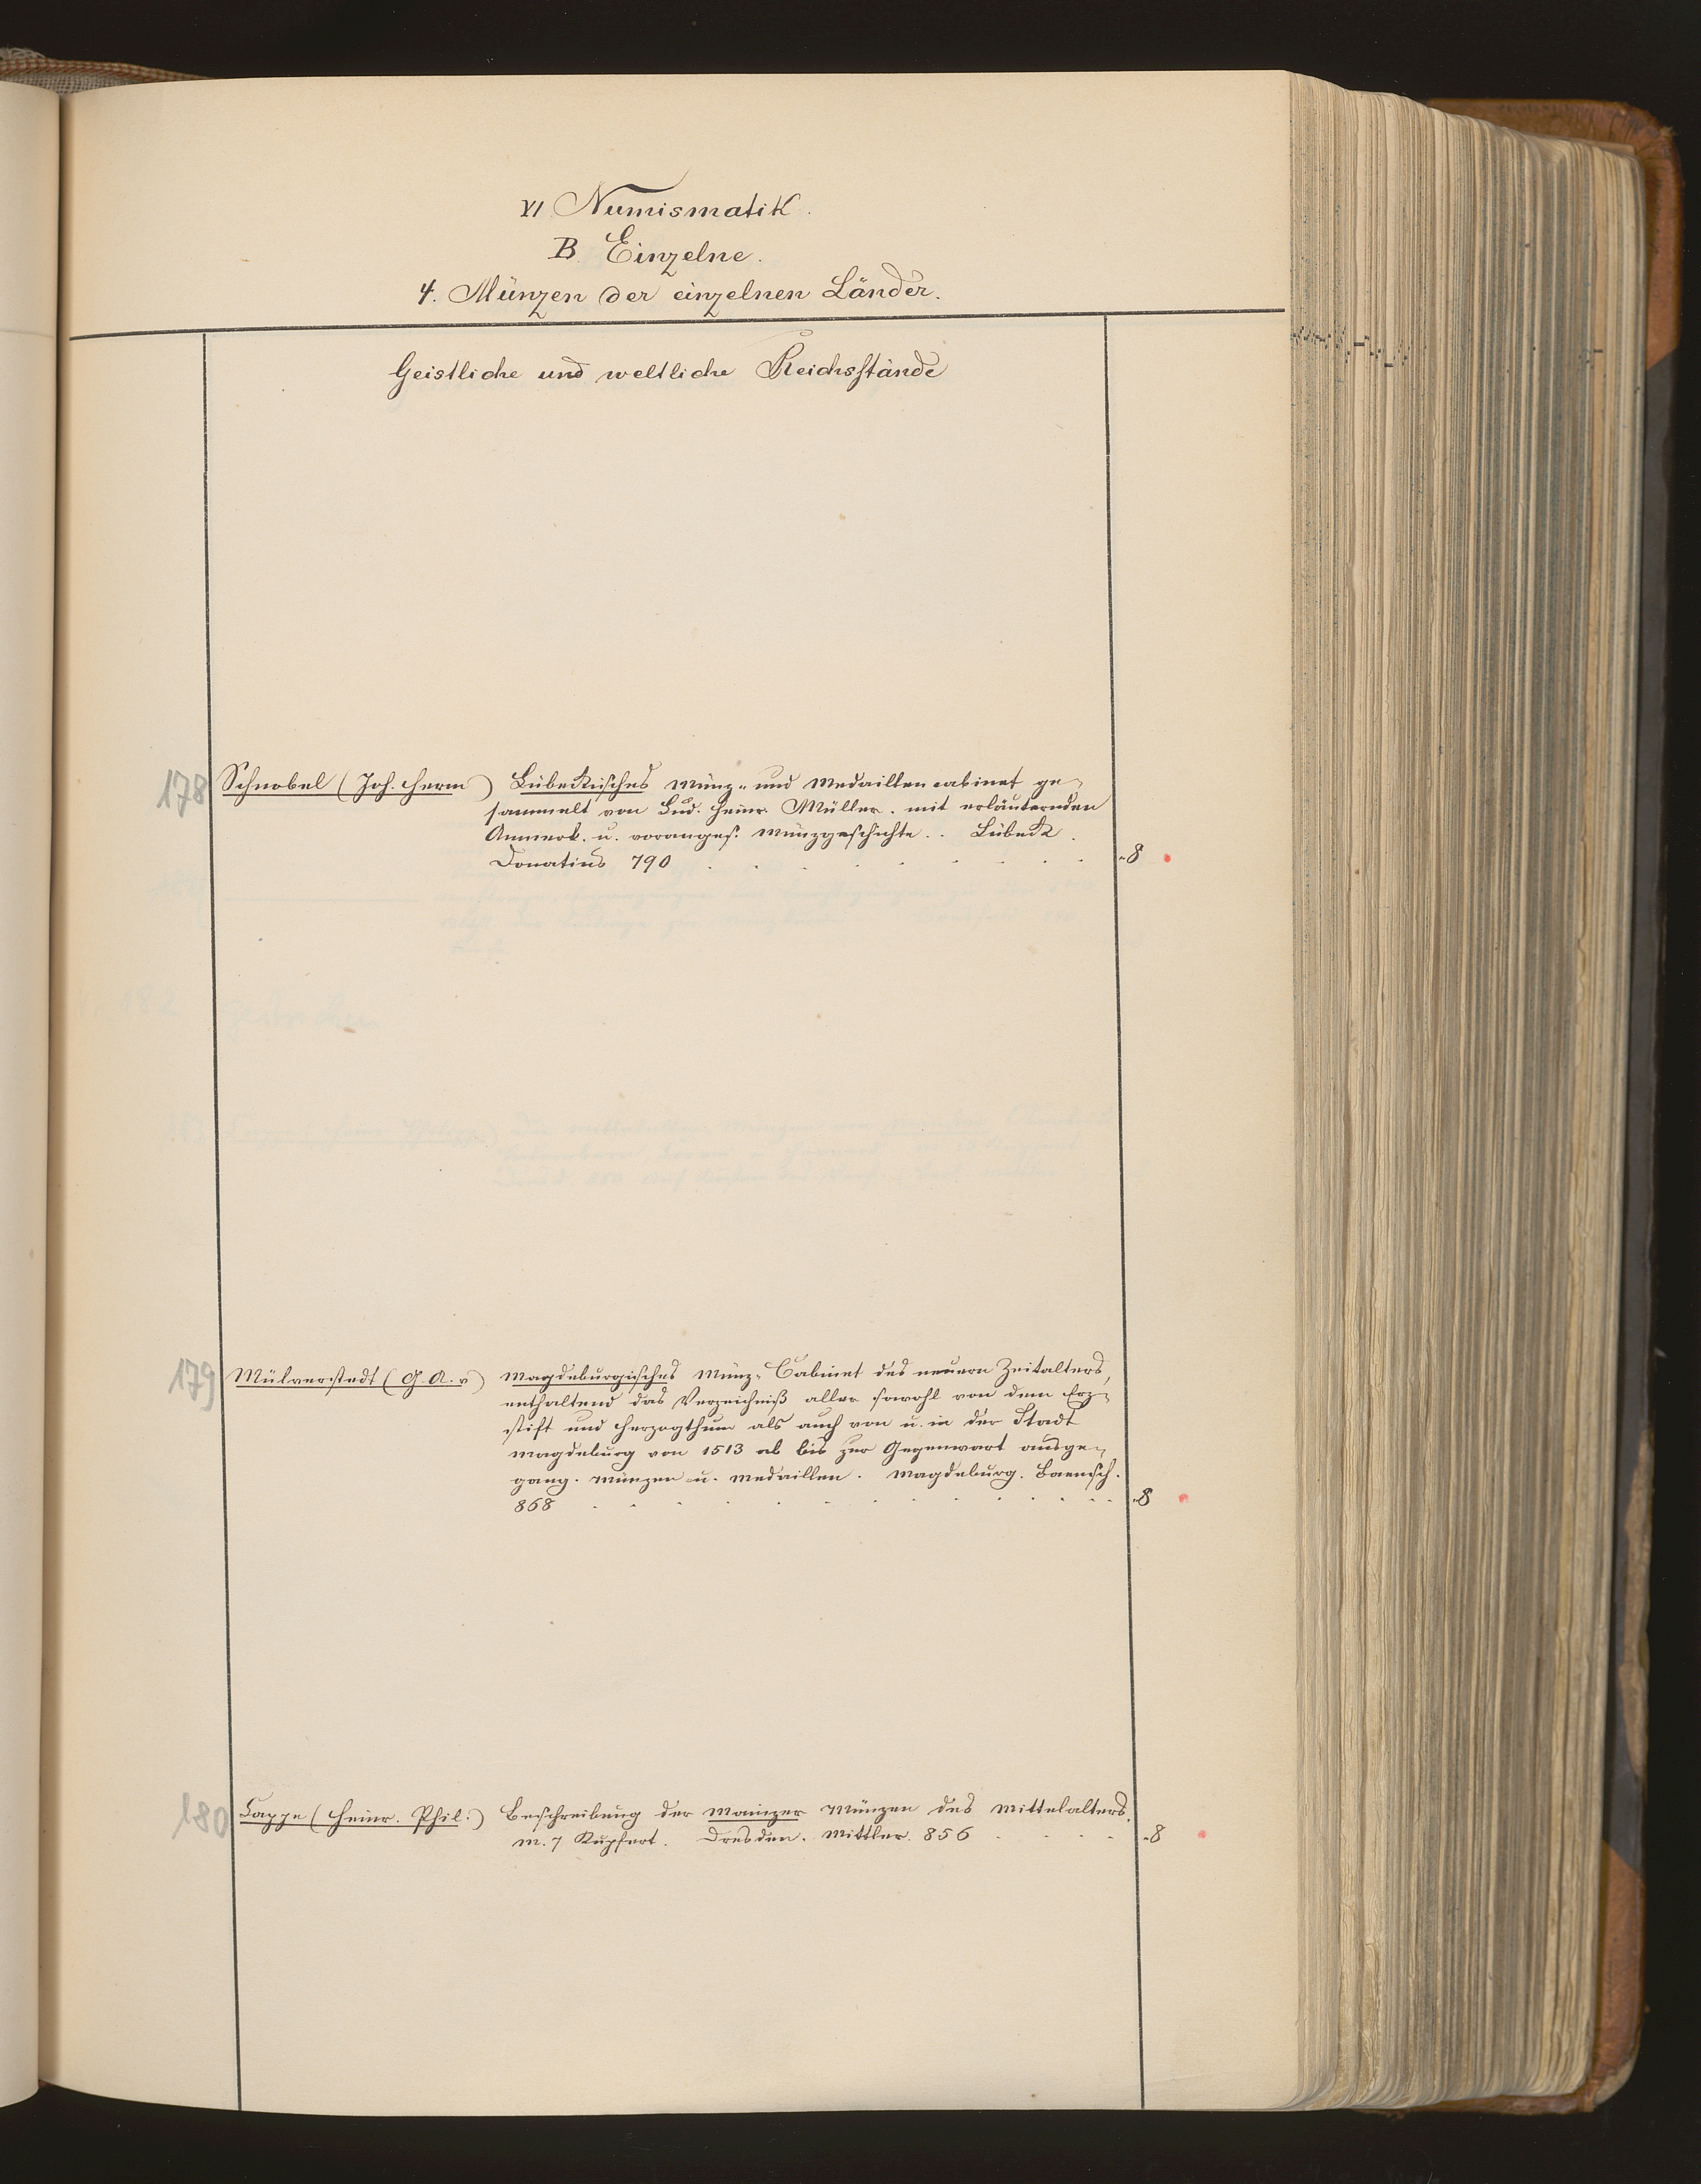 VI Numismatik.
B. Einzelne.
4. Münzen der einzelnen Länder.
Geistliche und weltliche Reichsstände
178 Schnobel (Joh. Herm) Lübeckisches Münz- und Medaillencabinet ge-
sammelt von Lud. Heinr. Müller. mit erläuternden
Anmerk. u. vorangef. Münzgeschichte. Lübeck.
Donatius 790 . . . . . . . . . . -8
179 Mülverstedt (G. A. v) Magdeburgisches Münz-Cabinet des neuern Zeitalters,
enthaltend das Verzeichniß aller sowohl von dem Erz-
stift und Herzogthum als auch von u. in der Stadt
Magdeburg von 1513 ab bis zur Gegenwart ausge-
gang. Münzen u. Medaillen. Magdeburg. Baensch.
868 . . . . . . . . . . . . . -8
180 Cappe (Heinr. Phil.) Beschreibung der Mainzer Münzen des Mittelalters.
m. 7 Kupfert. Dresden. Mittler. 856 . . . . -8